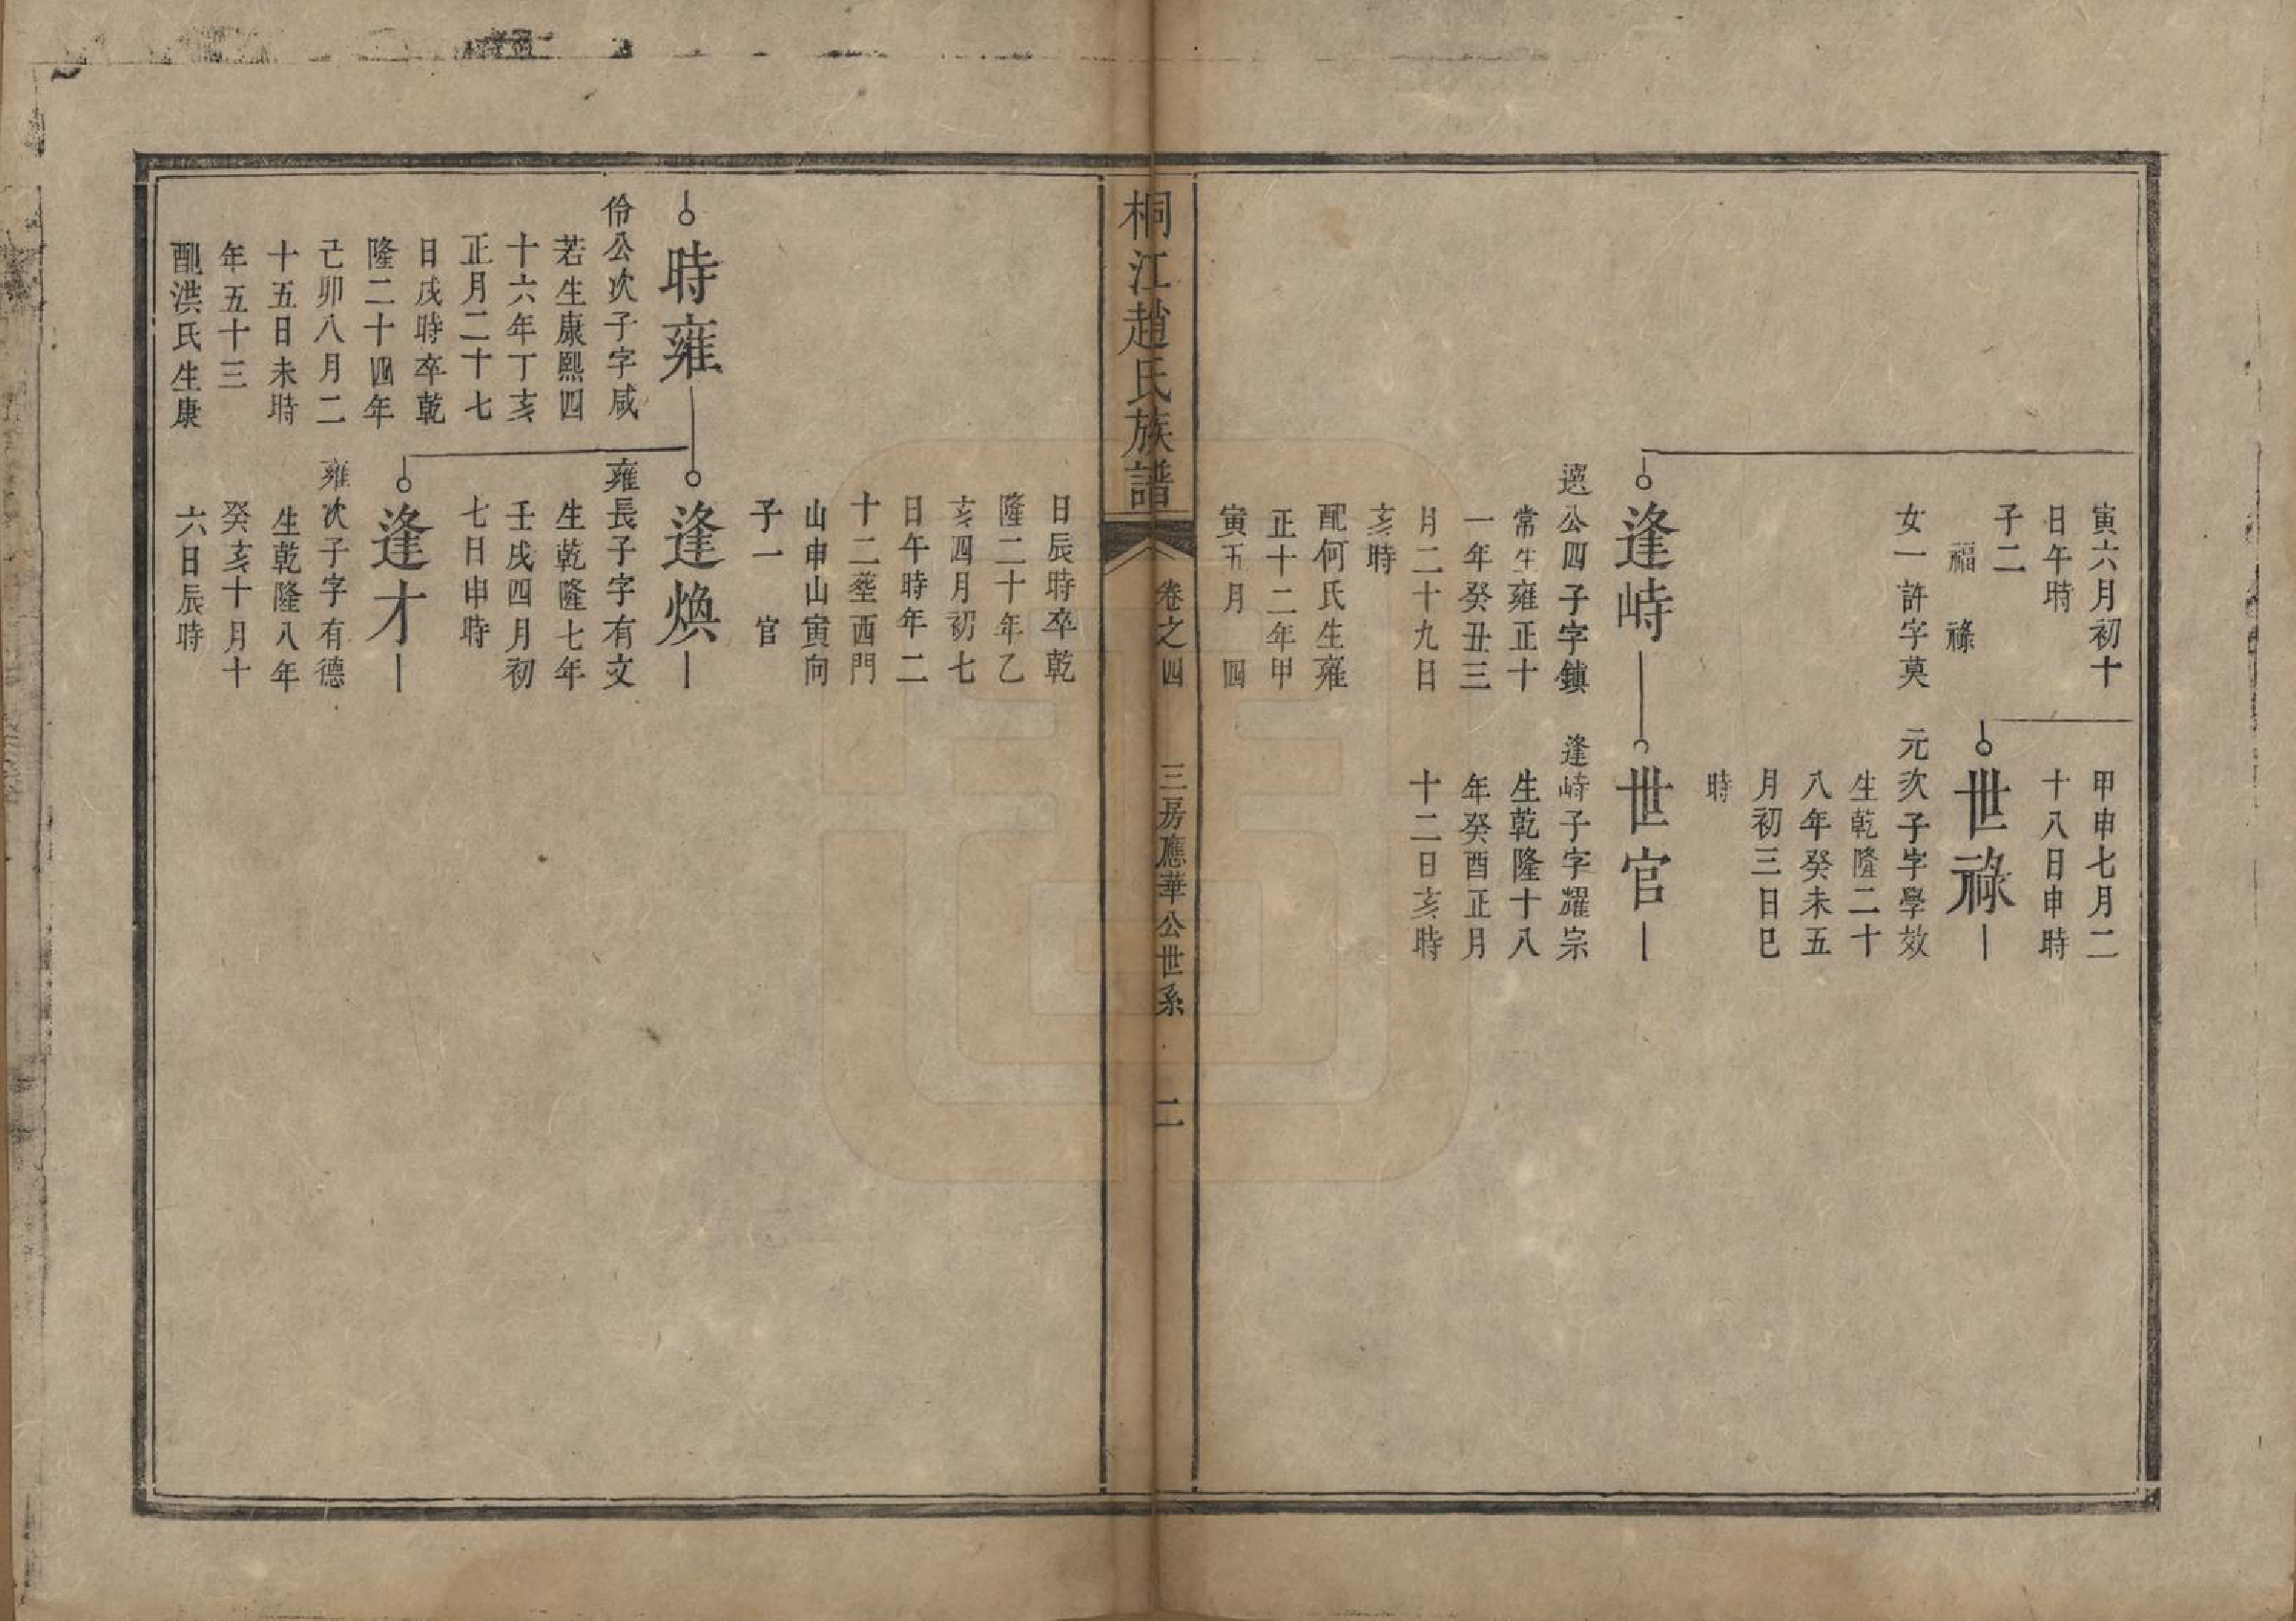 寅六月初十
日午時
子二
福　祿
女一許字莫
甲申七月二
十八日申時
世祿
元次子字學效
生乾隆二十
八年癸未五
月初三日巳
時
逢峙
選公四子字鎮
常生雍正十
一年癸丑三
月二十九日
亥時
配何氏生雍
正十二年甲
寅五月　四
世官
逢峙子字耀宗
生乾隆十八
年癸酉正月
十二日亥時
桐江趙氏族譜
卷之四
三房應華公世系
二
日辰時卒乾
隆二十年乙
亥四月初七
日午時年二
十二塟西門
山申山寅向
子一　官
時雍
份公次子字咸
若生康熙四
十六年丁亥
正月二十七
日戌時卒乾
隆二十四年
己卯八月二
十五日未時
年五十三
配洪氏生康
逢煥
雍長子字有文
生乾隆七年
壬戌四月初
七日申時
逢才
雍次子字有德
生乾隆八年
癸亥十月十
六日辰時